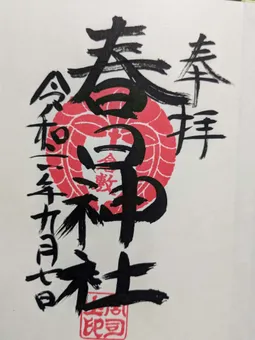 奉拝
春日神社
令和二年九月七日